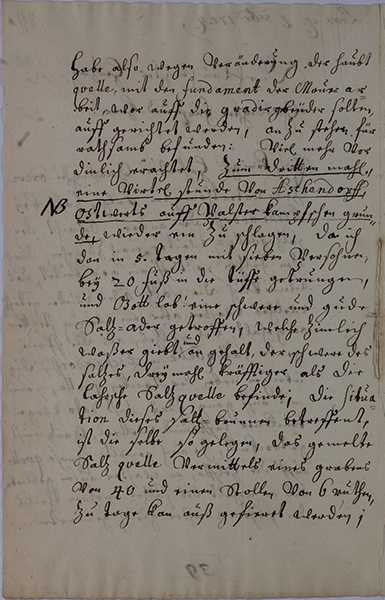 habe, also wegen Veränderung der haubt
quelle, mit den fundament der Mour ar
beit, wor auff die gradirgebäuder solten
auff gerichtet werden, an zu stehen für
rathsamb befunden: Viel mehr vor
dinlich erachtet, Zum dritten mahl,
eine Virtel stunde von Aschendorff,
NB ostwerts auff Valster kampschen grun
de, wieder ein zu schlagen, da ich
dan in 5. tagen mit sieben Persohnen,
bey 20 fuß in die tüffe getrungen,
und Gott lob eine schwere und gude
Saltz-ader getroffen, welche zimlich
waßer giebt, und an gehalt, der schwere des
saltzes, dreymahl kräfftiger als die
Saltz quelle befinde, Die situa
tion dieses saltz-brunnen betreffent,
ist die selbe so gelegen, das gemelte
Saltz quelle vermittels eines grabens
von 40 und einen Stollen von 6 ruthen,
zu tage kan auß gefüeret werden,
39